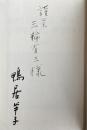 謹呈
三輪秀三様
鴨居羊子